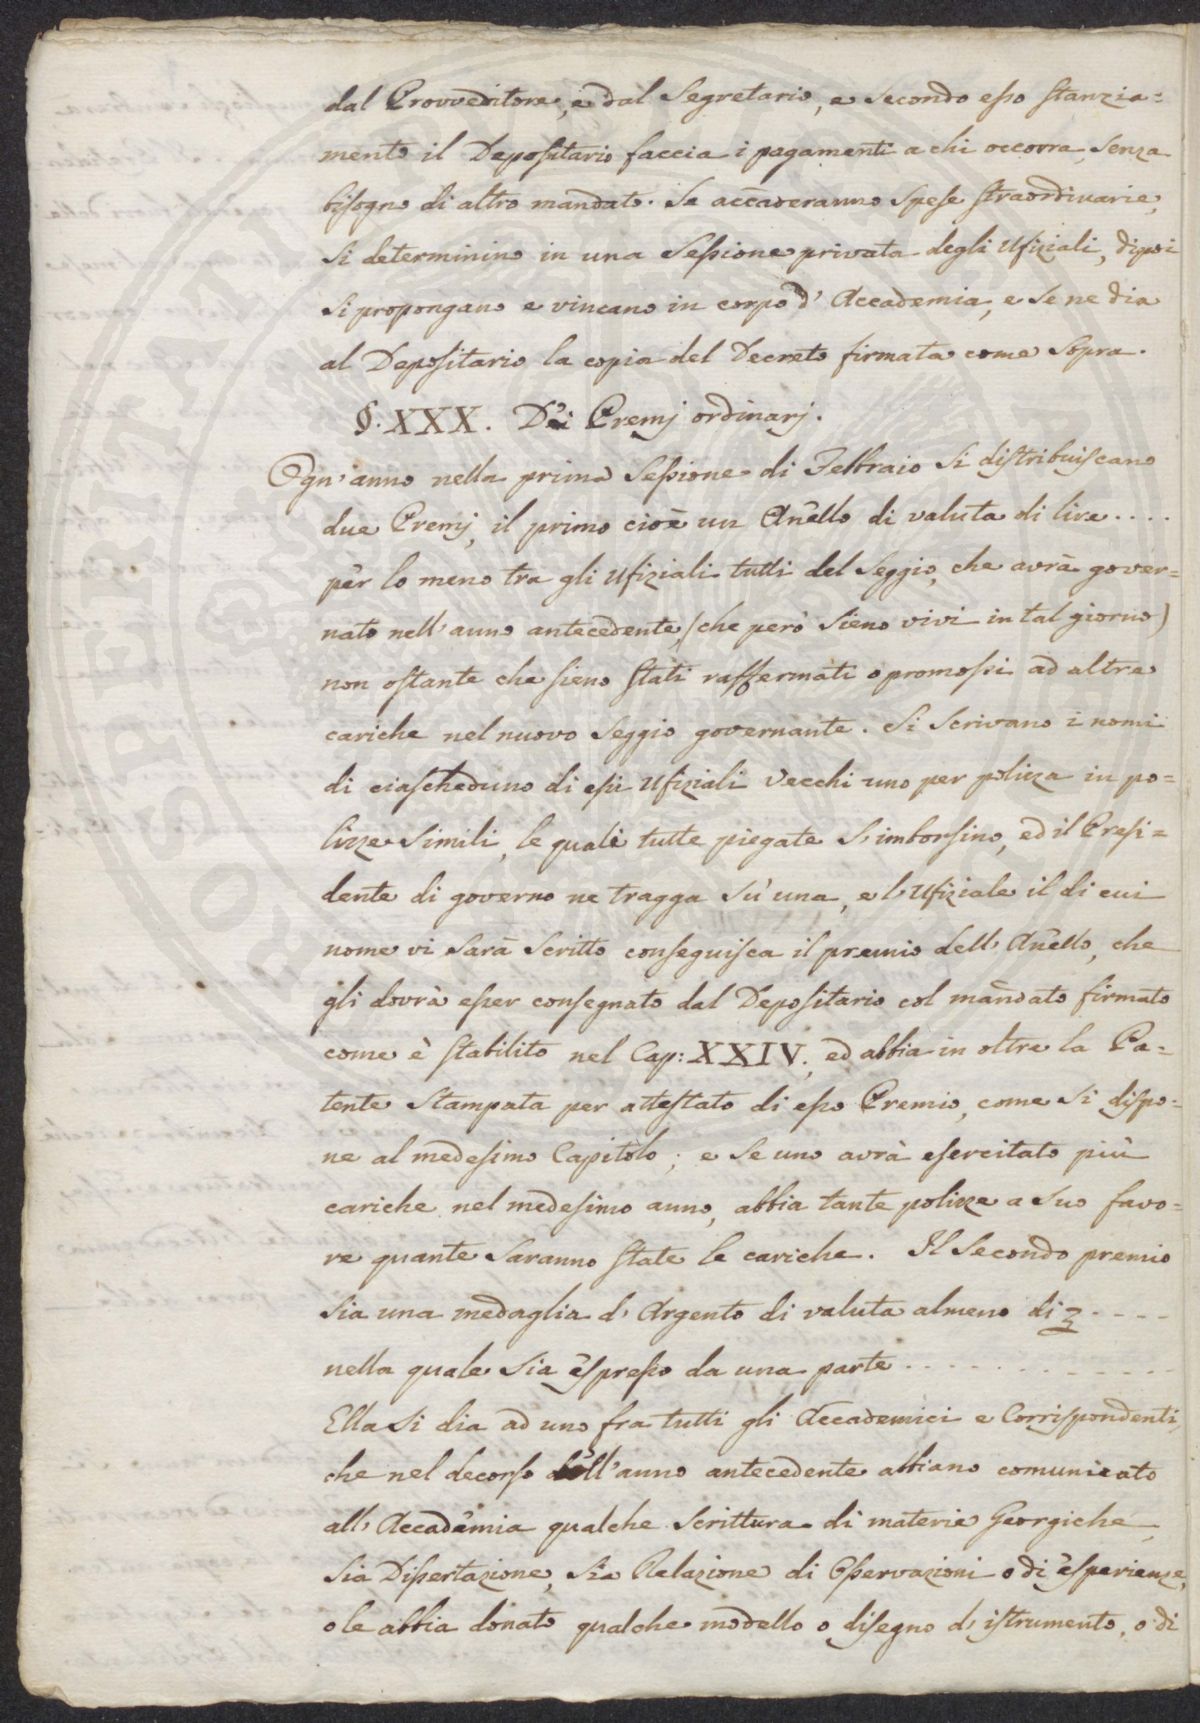 dal Provveditore, e dal Segretario, e secondo esso stanzia=
mento il Depositario faccia i pagamenti a chi occorra, senza
bisogno di altro mandato. Se accaderanno spese straordinarie,
si determinino in una Sessione privata degli Ufiziali, dipoi
si propongano e vincano in corpo d'Accademia, e se ne dia
al Depositario la copia del Decreto firmata come sopra.
§. XXX. Dei Premj ordinarj.
Ogn'anno nella prima Sessione di Febbraio si distribuiscano
due Premj, il primo cioè un Anello di valuta di lire....
per lo meno tra gli Ufiziali tutti del Seggio, che avrà gover=
nato nell'anno antecedente, (che però sieno vivi in tal giorno)
non ostante che sieno stati raffermati o promossi ad altre
cariche nel nuovo Seggio governante. Si scrivano i nomi
di ciascheduno di essi Ufiziali Vecchi uno per polizza in po=
lizze simili, le quali tutte piegate s'imborsino, ed il Presi=
dente di governo ne tragga su' una, e l'Ufiziale il di cui
nome vi sarà scritto conseguisca il premio dell'Anello, che
gli dovrà esser consegnato dal Depositario col mandato firmato
come è stabilito nel Cap: XXIV., ed abbia in oltre la Pa=
tente stampata per attestato di esso Premio, come si dispo=
ne al medesimo Capitolo; e se uno avrà esercitato più
cariche nel medesimo anno, abbia tante polizze a suo favo=
re quante saranno state le cariche. Il Secondo premio
sia una medaglia d'Argento di valuta almeno di ....
nella quale sia espresso da una parte ..........
Ella si dia ad uno fra tutti gli Accademici e Corrispondenti,
che nel decorso dell'anno antecedente abbiano comunicato
all'Accademia qualche scrittura di materie Georgiche,
sia Dissertazione, sia Relazione di Osservazioni o di esperienze,
o le abbia donato qualche modello o disegno d'istrumento, o di